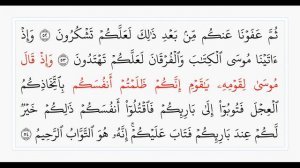 ثُمَّ عَفَوْنَا عَنكُم مِّنۢ بَعْدِ ذَٰلِكَ لَعَلَّكُمْ تَشْكُرُونَ ٥٢ وَإِذْ
ءَاتَيْنَا مُوسَى ٱلْكِتَٰبَ وَٱلْفُرْقَانَ لَعَلَّكُمْ تَهْتَدُونَ ٥٣ وَإِذْ قَالَ
مُوسَىٰ لِقَوْمِهِۦ يَٰقَوْمِ إِنَّكُمْ ظَلَمْتُمْ أَنفُسَكُم بِٱتِّخَاذِكُمُ
ٱلْعِجْلَ فَتُوبُوٓا۟ إِلَىٰ بَارِئِكُمْ فَٱقْتُلُوٓا۟ أَنفُسَكُمْ ذَٰلِكُمْ خَيْرٌ
لَّكُمْ عِندَ بَارِئِكُمْ فَتَابَ عَلَيْكُمْ ۚ إِنَّهُۥ هُوَ ٱلتَّوَّابُ ٱلرَّحِيمُ ٥٤